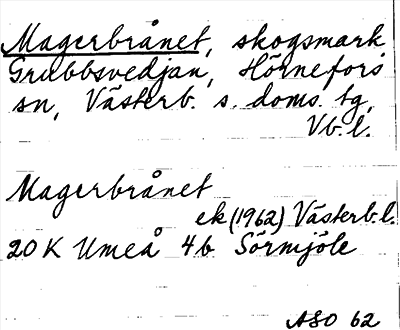 Magerbrånet, skogsmark,
Grubbsvedjan, Hörnefors
sn, Västerb. s. doms. tg,
Vb. l.
Magerbrånet
ek (1962) Västerb. l.
20 K Umeå 4b Sörmjöle
ASO 62